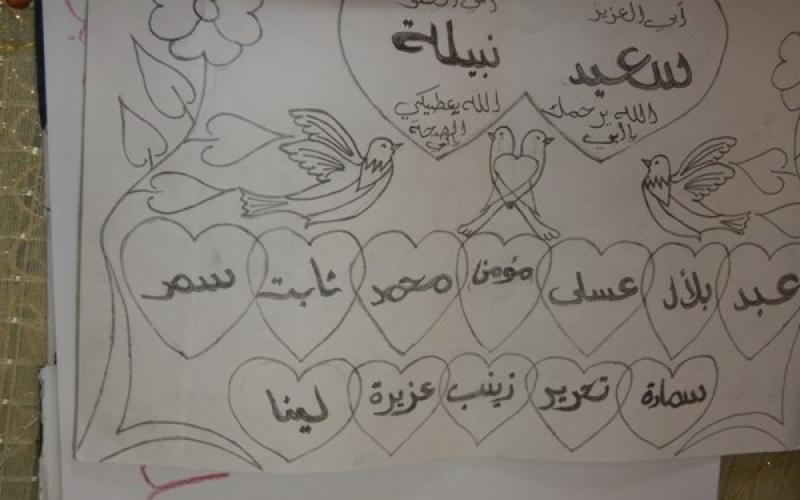 أبي العزيز
سعيد
الله يرحمك
يا أبي
نبيلة
الله يعطيكي
الصحة
عبد بلال عسلي مؤمن محمد ثابت سمر
تحرير زينب عزيزة لينا